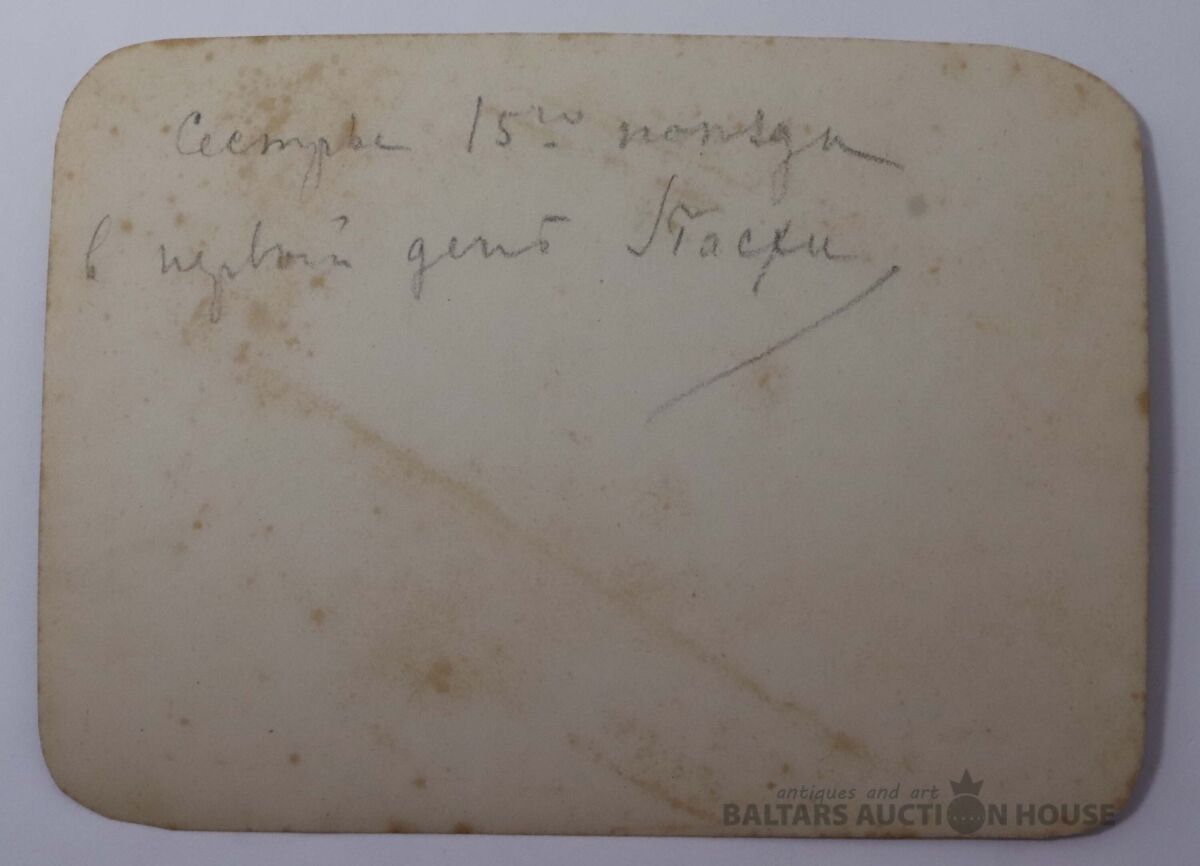 Сестры 15го поѣзда
в первый день Пасхи
antiques and art
BALTARS AUCTION HOUSE